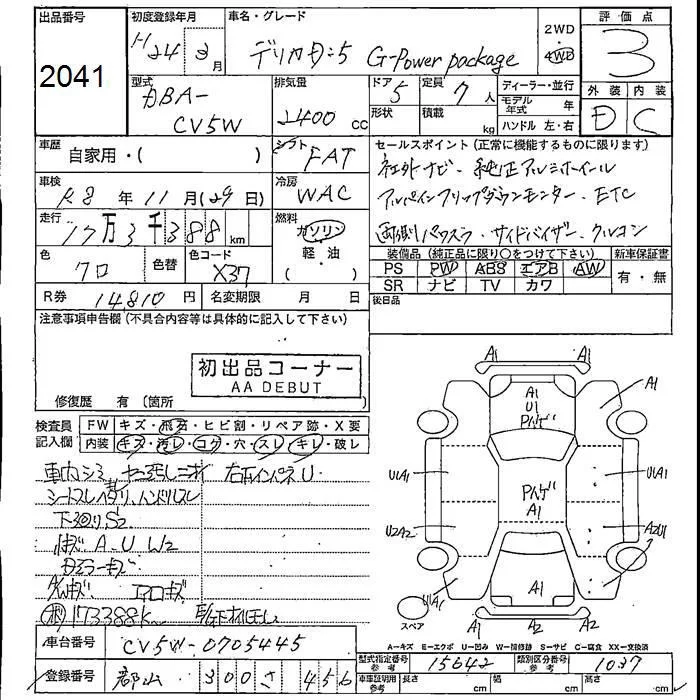 出品番号
2041
初度登録年月
H24 2月
車名・グレード
デリカD:5 G-Power package
2WD
・
4WD
評価点
3
型式
DBA-
CV5W
排気量
2400 cc
ドア 5
定員 7人
形状
積載 kg
ディーラー・並行
モデル年式 年
ハンドル 左・右
外装 内装
D C
車歴
自家用・( )
シフト
FAT
車検
R8年 11月(29日)
冷房
WAC
走行
17万3千388km
燃料
ガソリン
軽・油
( )
色
クロ
色替
色コード
X37
R券 14,810円
名変期限 月 日
セールスポイント (正常に機能するものに限ります)
社外ナビ・純正アルミホイール
アルパインフリップダウンモニター・ETC
両側パワスラ・サイドバイザー・クルコン
装備品 (純正品に限り○をつけて下さい)
新車保証書
PS PW ABS エアB AW
有・無
SR ナビ TV カワ
後日品
注意事項申告欄 (不具合内容等は具体的に記入して下さい)
初出品コーナー
AA DEBUT
修復歴 有 (箇所
検査員
記入欄
FW キズ・飛石・ヒビ割・リペア跡・X要
内装 キズ・汚レ・コゲ・穴・スレ・キレ・破レ
車内シミ
右インパネU
シートスレ ハンドルスレ
下回りS2
A、U W2
A/Wキズ エアロキズ
173388k
車台番号 CV5W-0705445
登録番号 郡山 300 さ 456
A1 A1
A1
A1
U1
Pハゲ
U1A1 U1A1
Pハゲ
A1
U2A2 A2U1
U1A1
A1
A1 A2 A2
スペア
A-キズ E-エクボ U-凹み W-補修跡 S-サビ C-腐食 XX-交換済
型式指定番号
参考
15642
類別区分番号
参考
1037
車庫証明用
参考
長さ cm 幅 cm 高さ cm